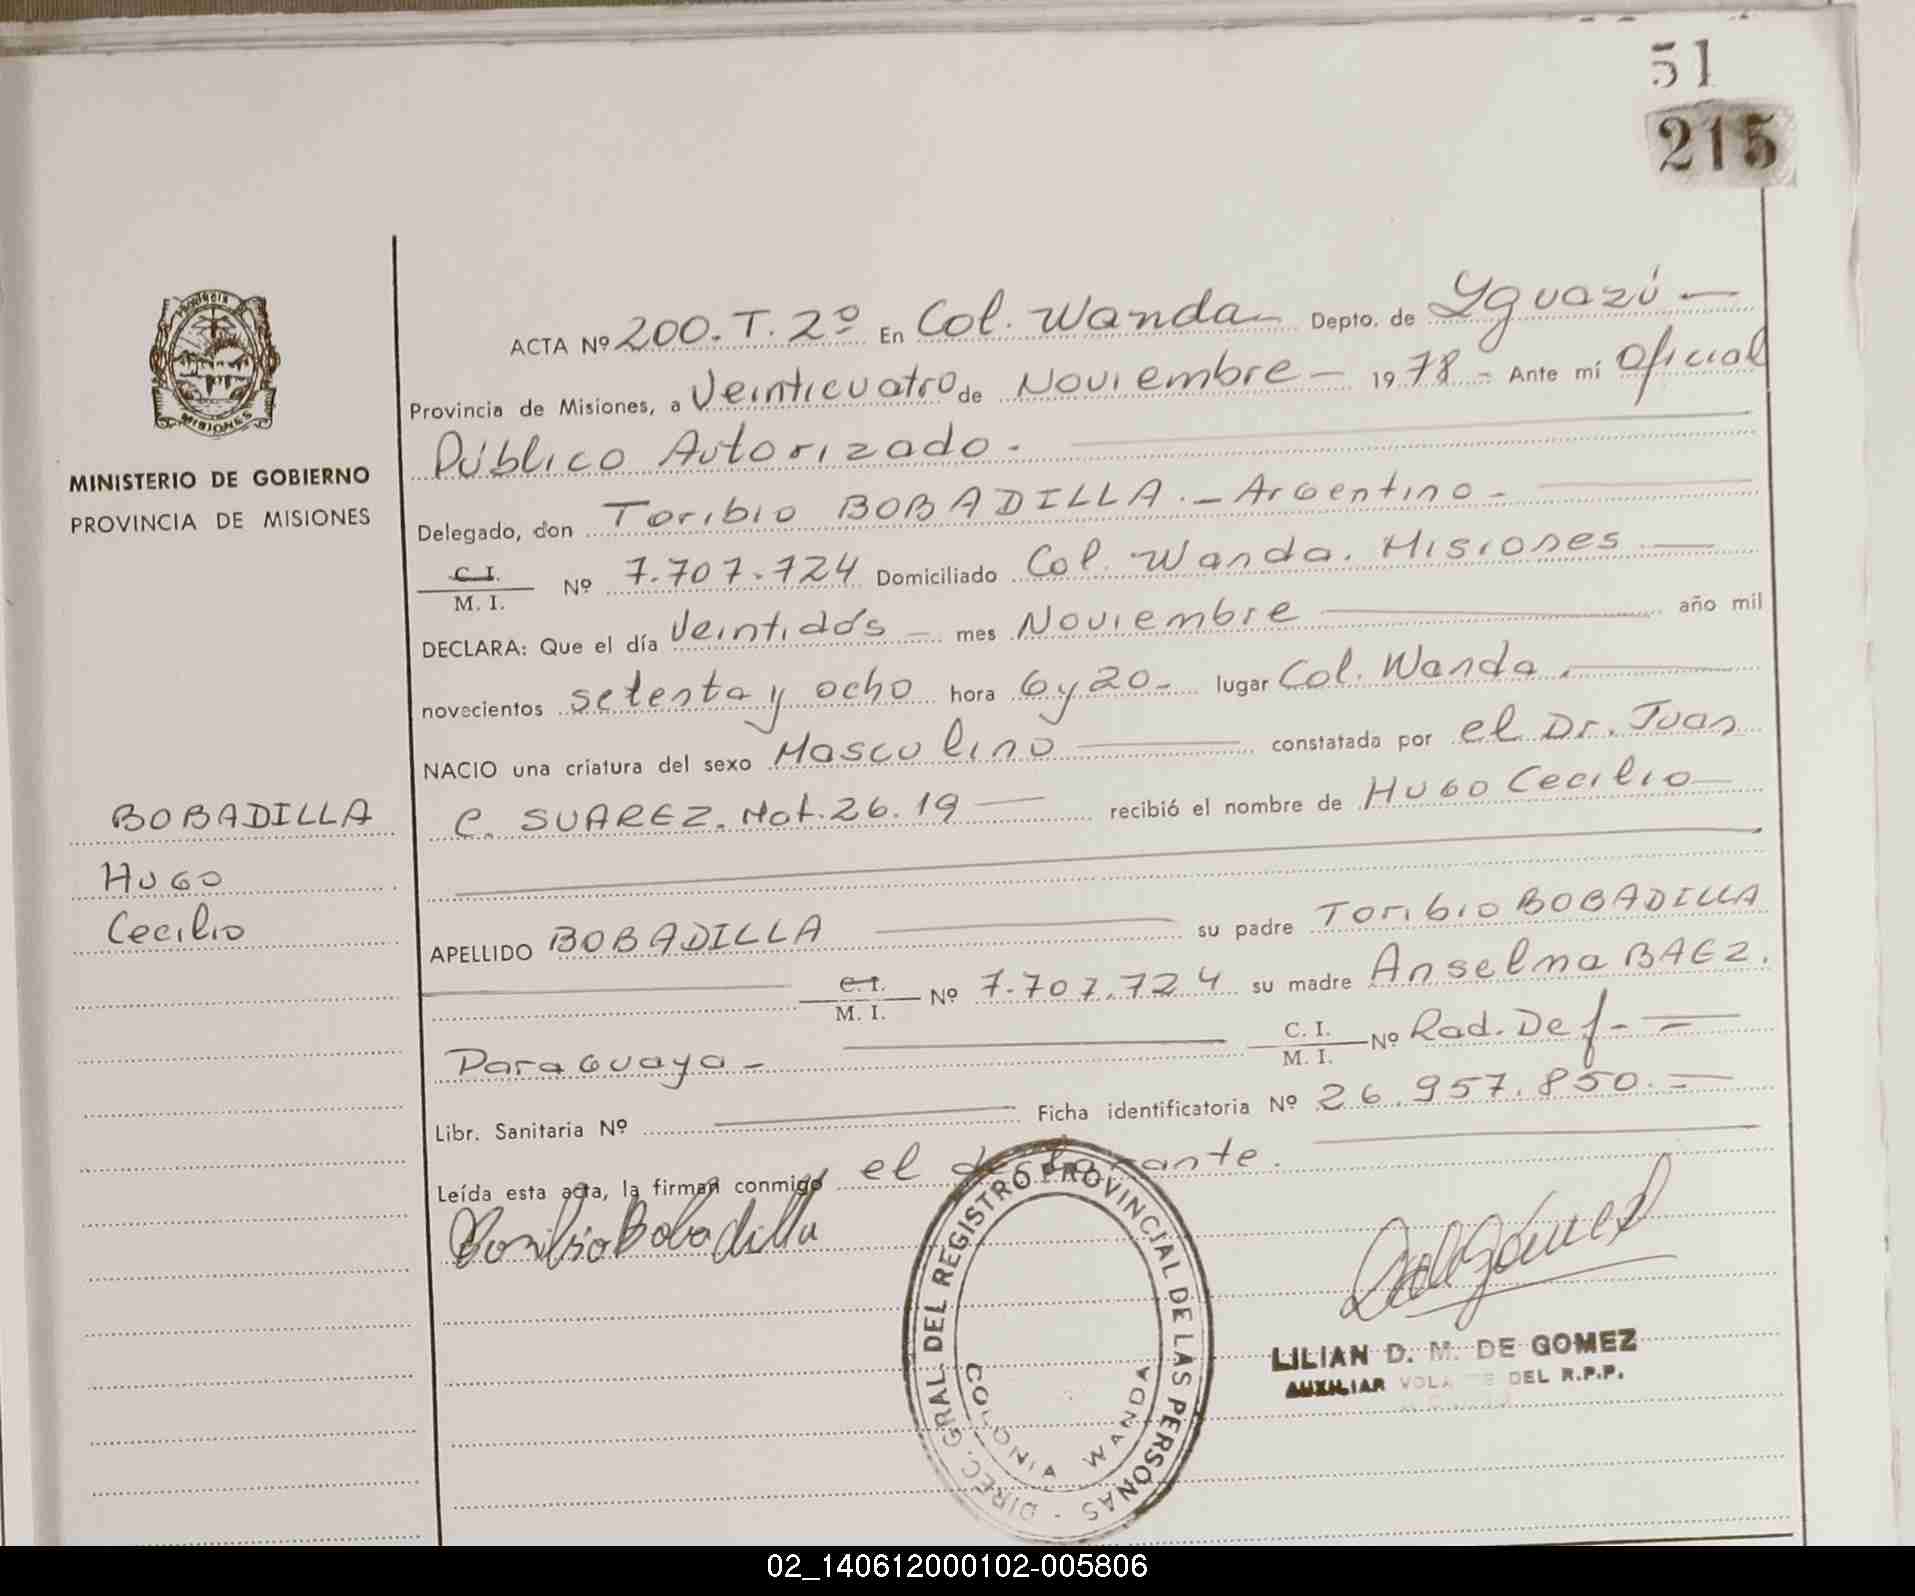 51
215
PROVINCIA
MISIONES
MINISTERIO DE GOBIERNO
PROVINCIA DE MISIONES
BOBADILLA
HUGO
Cecilio
ACTA Nº 200. T. 2º En Col. Wanda Depto. de Yguazú —
Provincia de Misiones, a Veinticuatro de Noviembre — 1978 - Ante mí Oficial
Público Autorizado.
Delegado, don Toribio BOBADILLA. - Argentino -
C. I.
M. I. Nº 7.707.724 Domiciliado Col. Wanda. Misiones —
DECLARA: Que el día Veintidós — mes Noviembre — año mil
novecientos setenta y ocho hora 6 y 20 - lugar Col. Wanda.
NACIO una criatura del sexo Masculino — constatada por el Dr. Juan
C. SUAREZ. Mat. 26. 19 — recibió el nombre de HUGO Cecilio —
APELLIDO BOBADILLA — su padre Toribio BOBADILLA
C. I.
M. I. Nº 7.707.724 su madre Anselma BAEZ.
Paraguaya - — C. I.
M. I. Nº Rad. Def. - =
Libr. Sanitaria Nº — Ficha identificatoria Nº 26.957.850. =
Leída esta acta, la firman conmigo el declarante.
Toribio Bobadilla
DIREC. GRAL. DEL REGISTRO PROVINCIAL DE LAS PERSONAS -
COLONIA WANDA
LILIAN D. M. DE GOMEZ
AUXILIAR DEL R.P.P.
02_140612000102-005806